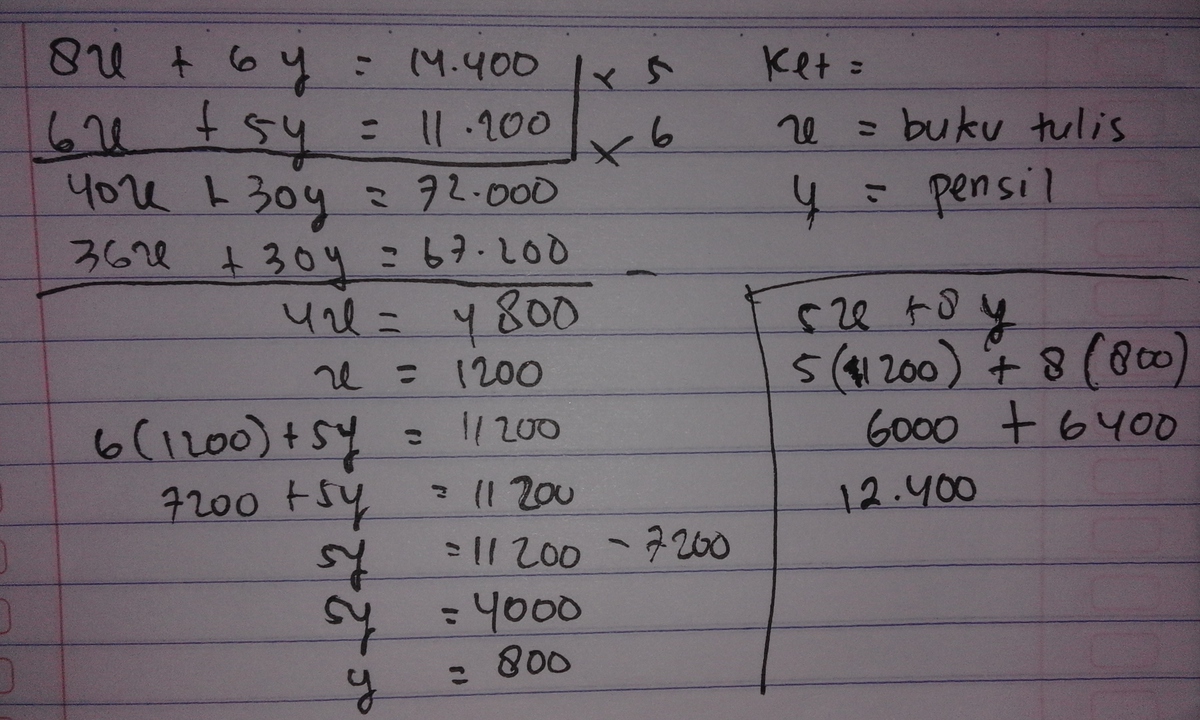 8x + 6y = 14.400 | x 5
6x + 5y = 11.200 | x 6
40x + 30y = 72.000
36x + 30y = 67.200 -
4x = 4800
x = 1200
6(1200) + 5y = 11200
7200 + 5y = 11200
5y = 11200 - 7200
5y = 4000
y = 800
Ket =
x = buku tulis
y = pensil
5x + 8y
5(1200) + 8(800)
6000 + 6400
12.400